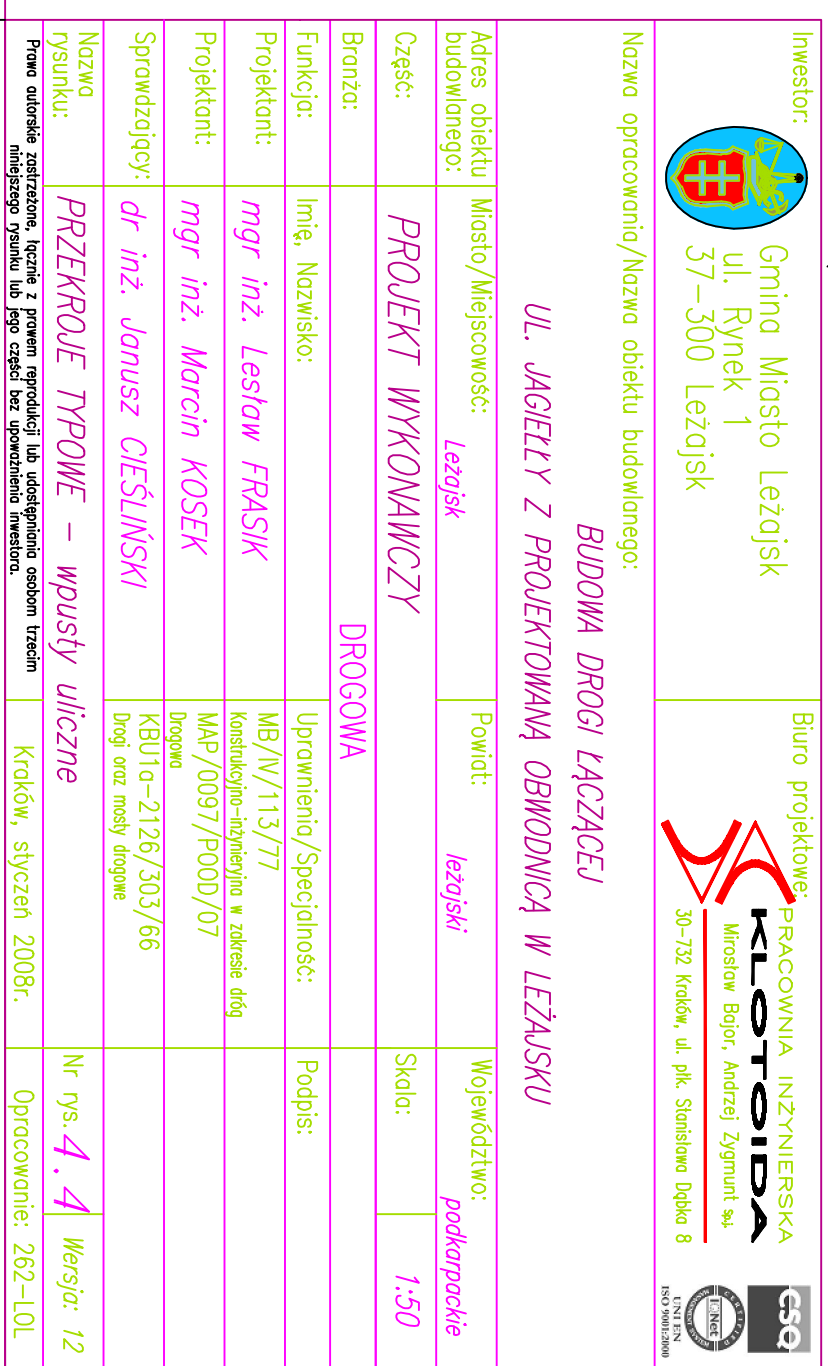 Inwestor:
Gmina Miasto Leżajsk
ul. Rynek 1
37-300 Leżajsk
Biuro projektowe:
PRACOWNIA INŻYNIERSKA
KLOTOIDA
Mirosław Bajor, Andrzej Zygmunt Sp.j.
30-732 Kraków, ul. płk. Stanisława Dąbka 8
CSQ
CERTIFIED
IQNet
MANAGEMENT SYSTEM
UNI EN
ISO 9001:2000
Nazwa opracowania/Nazwa obiektu budowlanego:
BUDOWA DROGI ŁĄCZĄCEJ
UL. JAGIEŁŁY Z PROJEKTOWANĄ OBWODNICĄ W LEŻAJSKU
Adres obiektu
budowlanego:
Miasto/Miejscowość:
Leżajsk
Powiat:
leżajski
Województwo:
podkarpackie
Część:
PROJEKT WYKONAWCZY
Skala:
1:50
Branża:
DROGOWA
Funkcja:
Imię, Nazwisko:
Uprawnienia/Specjalność:
Podpis:
Projektant:
mgr inż. Lesław FRASIK
MB/IV/113/77
Konstrukcyjno-inżynieryjna w zakresie dróg
Projektant:
mgr inż. Marcin KOSEK
MAP/0097/POOD/07
Drogowa
Sprawdzający:
dr inż. Janusz CIEŚLIŃSKI
KBU1a-2126/303/66
Drogi oraz mosty drogowe
Nazwa
rysunku:
PRZEKROJE TYPOWE - wpusty uliczne
Nr rys.
4.4
Wersja: 12
Prawa autorskie zastrzeżone, łącznie z prawem reprodukcji lub udostępniania osobom trzecim
niniejszego rysunku lub jego części bez upoważnienia inwestora.
Kraków, styczeń 2008r.
Opracowanie: 262-LOL